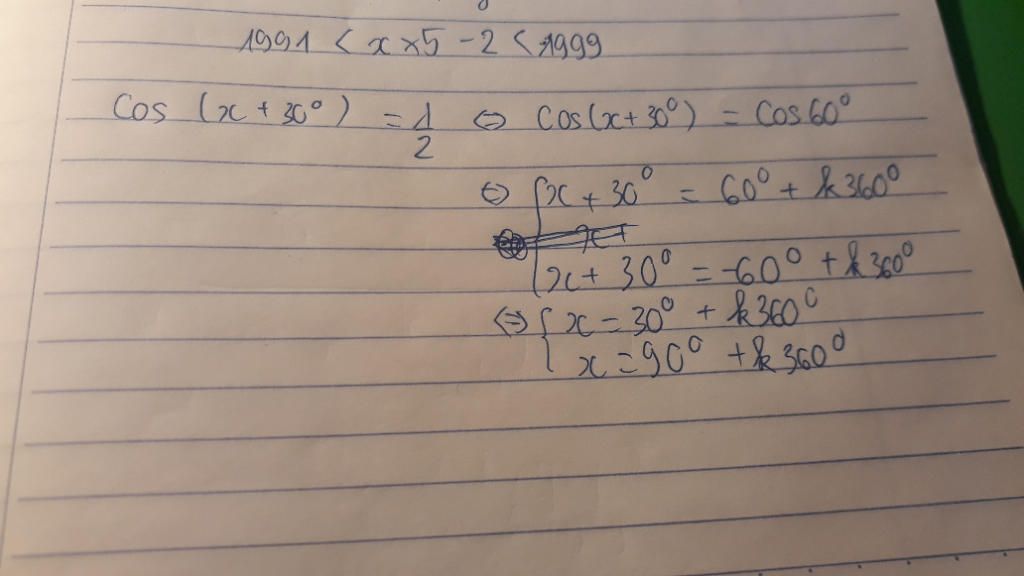 1991 < x × 5 - 2 < 1999
Cos (x + 30°) = 1/2 ⇔ Cos(x + 30°) = Cos 60°
⇔ { x + 30° = 60° + k360°
x + 30° = -60° + k360°
⇔ { x = 30° + k360°
x = 90° + k360°